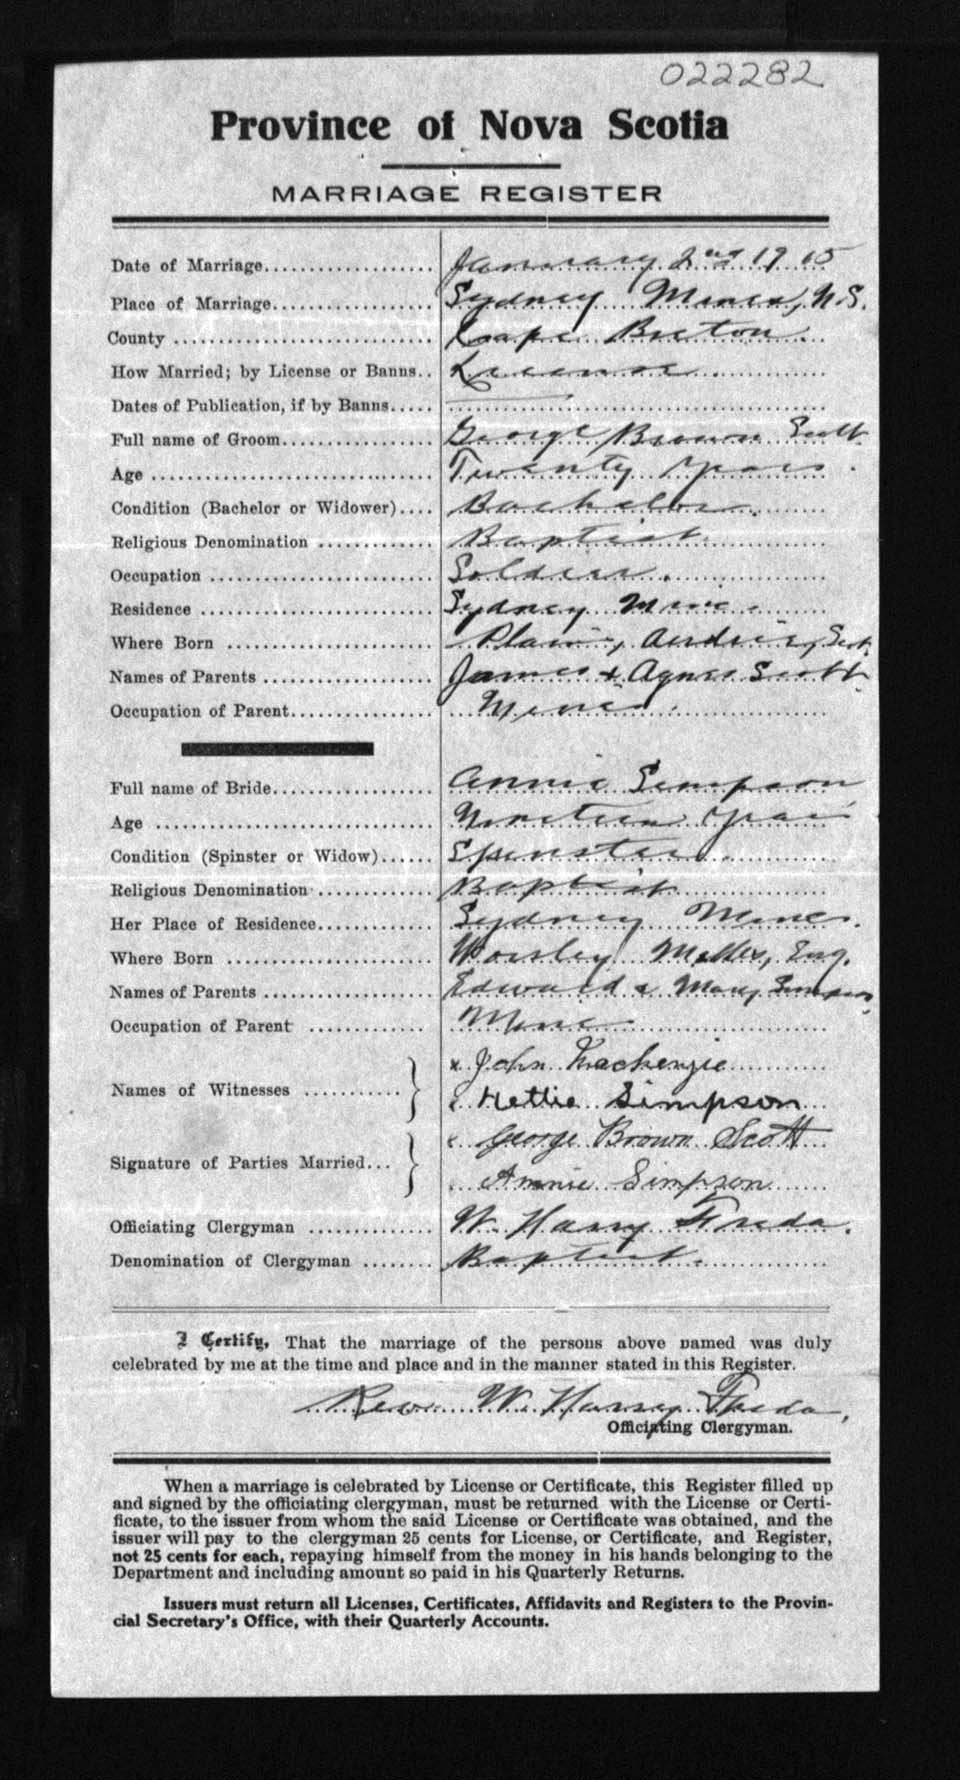 022282
Province of Nova Scotia
MARRIAGE REGISTER
Date of Marriage................... January 2nd 1915
Place of Marriage.................. Sydney Mines, N.S.
County ............................ Cape Breton.
How Married; by License or Banns.. License.
Dates of Publication, if by Banns.....
Full name of Groom................. George Brown Scott
Age ............................... Twenty years.
Condition (Bachelor or Widower).... Bachelor.
Religious Denomination ............ Baptist.
Occupation ........................ Soldier.
Residence ......................... Sydney Mines.
Where Born ........................ Plains, Airdrie, Scot.
Names of Parents .................. James & Agnes Scott.
Occupation of Parent............... Miner.
Full name of Bride................. Annie Simpson
Age ............................... Nineteen years
Condition (Spinster or Widow)...... Spinster.
Religious Denomination ............ Baptist
Her Place of Residence............. Sydney Mines.
Where Born ........................ Worsley, Eng.
Names of Parents .................. Edward & Mary Simpson.
Occupation of Parent .............. Miner
Names of Witnesses ........... } x John Mackenzie
x Nettie Simpson
Signature of Parties Married... } x George Brown Scott
Annie Simpson
Officiating Clergyman ............. W. Harry Freda.
Denomination of Clergyman ........ Baptist.
I Certify, That the marriage of the persons above named was duly
celebrated by me at the time and place and in the manner stated in this Register.
Rev. W. Harry Freda,
Officiating Clergyman.
When a marriage is celebrated by License or Certificate, this Register filled up
and signed by the officiating clergyman, must be returned with the License or Certi-
ficate, to the issuer from whom the said License or Certificate was obtained, and the
issuer will pay to the clergyman 25 cents for License, or Certificate, and Register,
not 25 cents for each, repaying himself from the money in his hands belonging to the
Department and including amount so paid in his Quarterly Returns.
Issuers must return all Licenses, Certificates, Affidavits and Registers to the Provin-
cial Secretary's Office, with their Quarterly Accounts.